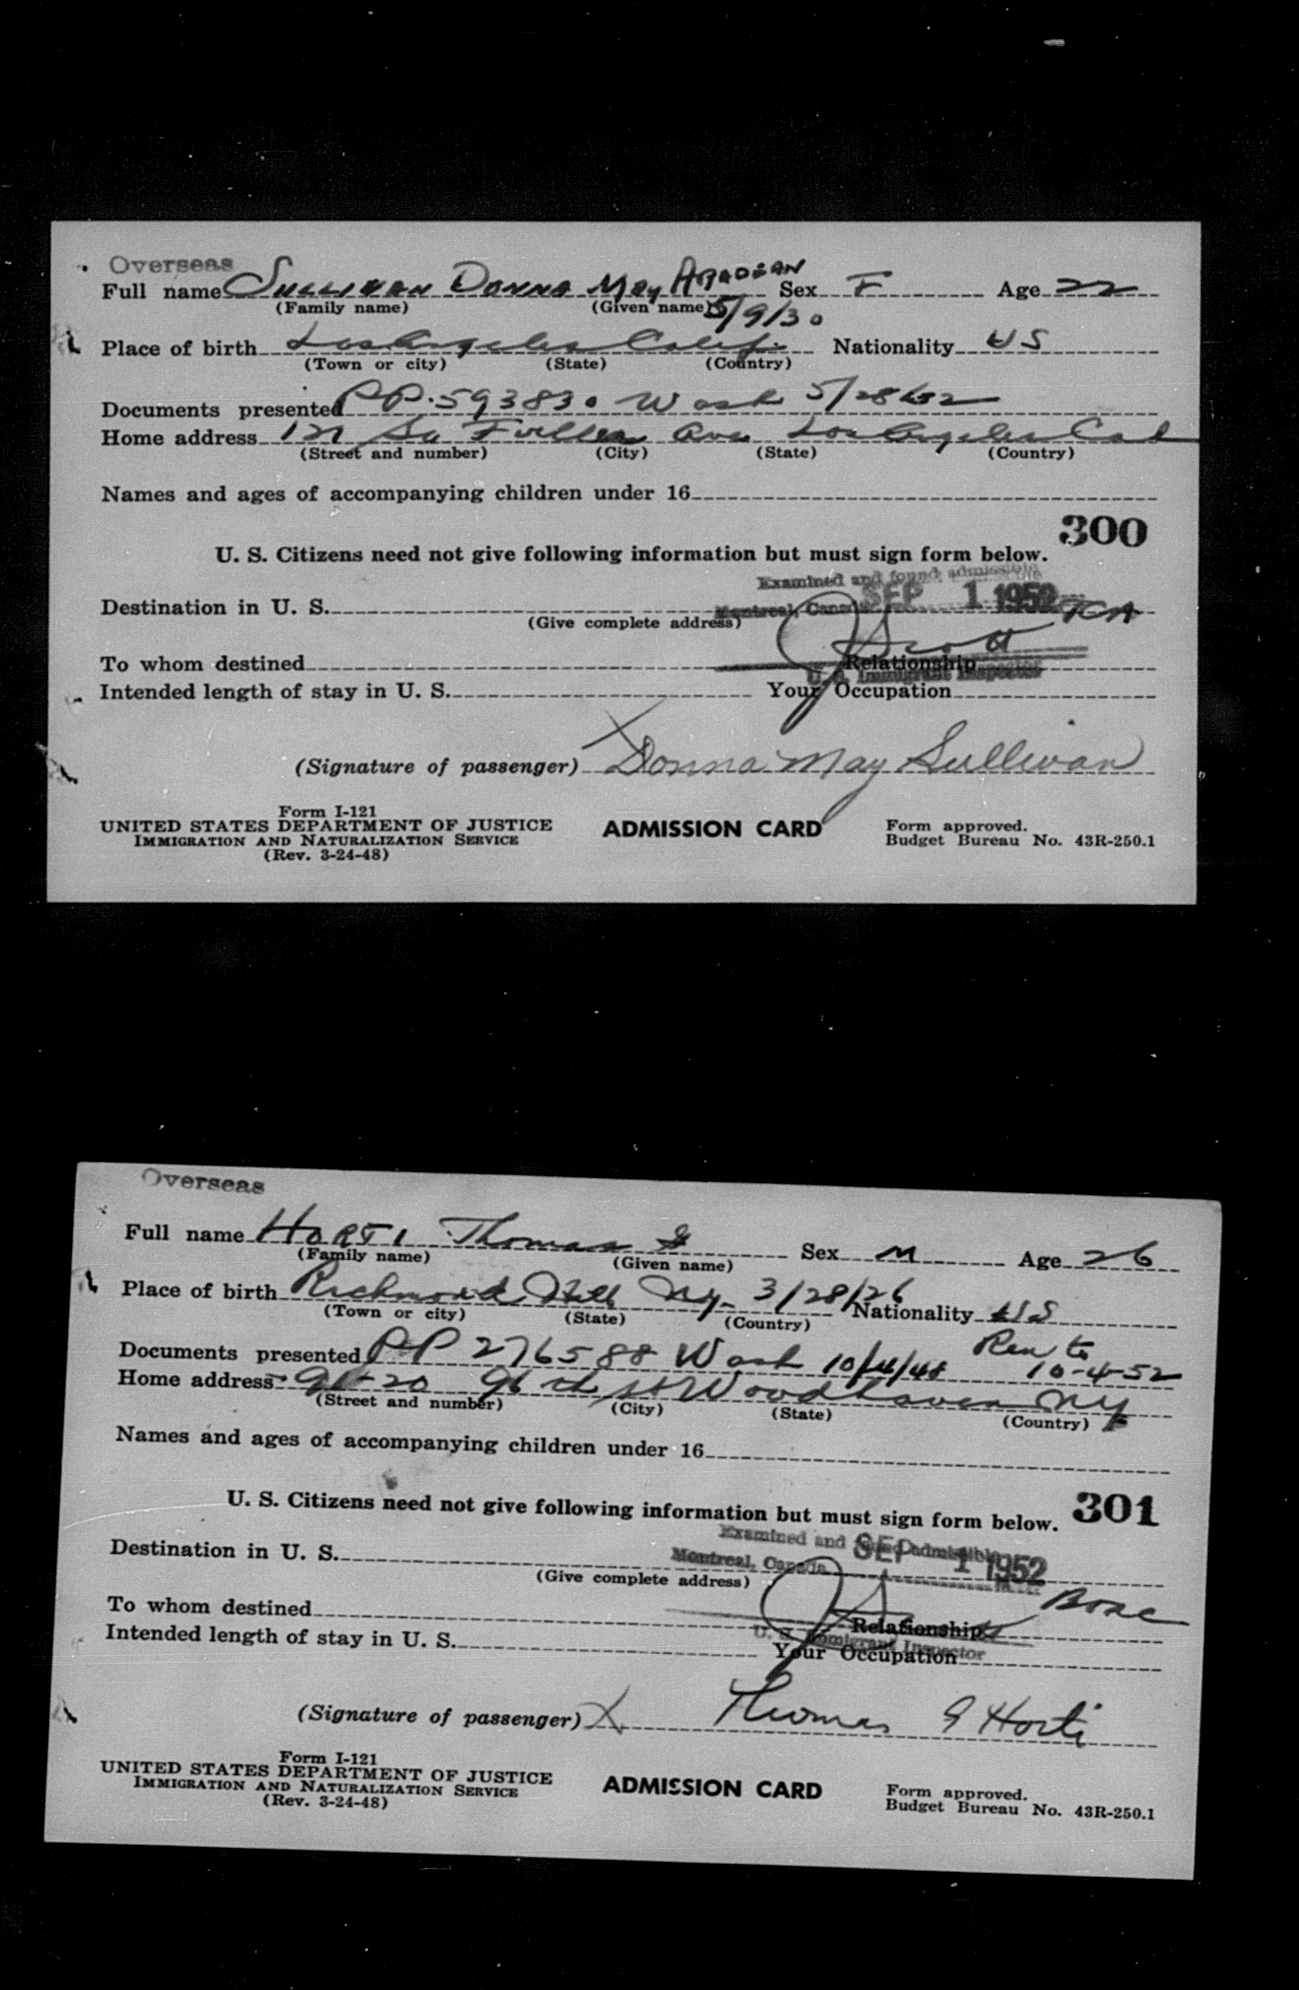 Overseas
Full name SULLIVAN DONNA May Sex F Age 22
(Family name) (Given name) 5/9/30
Place of birth Los Angeles Calif. Nationality US
(Town or city) (State) (Country)
Documents presented PP. 593830 Wash 5/28/52
Home address So Fuller Ave Los Angeles Cal
(Street and number) (City) (State) (Country)
Names and ages of accompanying children under 16
300
U. S. Citizens need not give following information but must sign form below.
Examined and found admissible
Destination in U. S. Montreal, Canada SEP 1 1952
(Give complete address)
Scott
To whom destined Relationship
U. S. Immigrant Inspector
Intended length of stay in U. S. Your Occupation
(Signature of passenger) X Donna May Sullivan
Form I-121
UNITED STATES DEPARTMENT OF JUSTICE ADMISSION CARD Form approved.
IMMIGRATION AND NATURALIZATION SERVICE Budget Bureau No. 43R-250.1
(Rev. 3-24-48)
Overseas
Full name HORTI Thomas G Sex M Age 26
(Family name) (Given name)
Place of birth Richmond Hill Ny. 3/28/26 Nationality US
(Town or city) (State) (Country)
Documents presented PP 276588 Wash 10/4/48 Ren to 10-4-52
Home address 96 th St Woodhaven Ny
(Street and number) (City) (State) (Country)
Names and ages of accompanying children under 16
301
U. S. Citizens need not give following information but must sign form below.
Examined and found admissible
Destination in U. S. Montreal, Canada SEP 1 1952
(Give complete address)
BOAC
To whom destined Relationship
U. S. Immigrant Inspector
Intended length of stay in U. S. Your Occupation
(Signature of passenger) X Thomas G Horti
Form I-121
UNITED STATES DEPARTMENT OF JUSTICE ADMISSION CARD Form approved.
IMMIGRATION AND NATURALIZATION SERVICE Budget Bureau No. 43R-250.1
(Rev. 3-24-48)